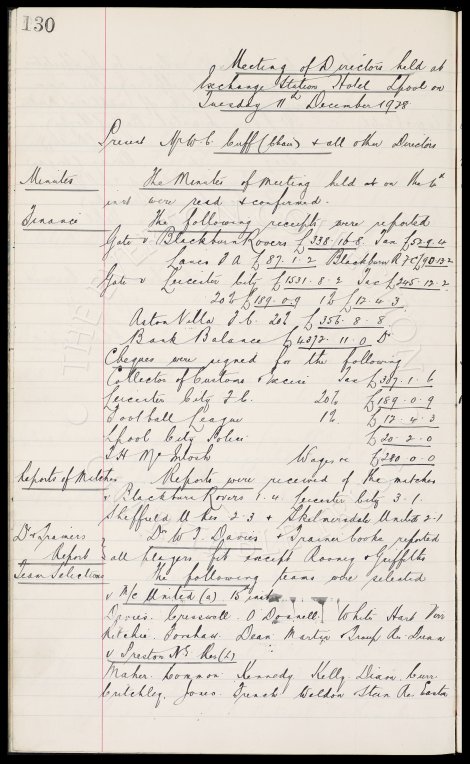 130
Meeting of Directors held at
Exchange Station Hotel Lpool on
Tuesday 11th December 1928
Present Mr W. C. Cuff (Chair) & all other Directors
Minutes The Minutes of meeting held at on the 6th
inst were read & confirmed.
Finance The following receipts were reported
Gate v Blackburn Rovers £338.16.8 Tax £52.9.4
Lancs F A £87.1.2 Blackburn R F C
Gate v Leicester City £1531.8.2 Tax £245.12.2
20% £189.0.9 1% £12.4.3
Aston Villa F.C. 20% £356.8.8
Bank Balance £4372.11.0 Dr
Cheques were signed for the following
Collector of Customs & Excise Tax £307.1.6
Leicester City F.C. 20% £189.0.9
Football League 1% £12.4.3
Lpool City Police £20.2.0
T. H. McIntosh Wages &c £280.0.0
Reports of Matches Reports were received of the matches
v Blackburn Rovers 1.4. Leicester City 3.1.
Sheffield U Res 2.3 & Skelmersdale United 2-1
Dr & Trainers Report Dr W. J. Davies & Trainer Cooke reported
all players fit except Rooney & Griffiths
Team Selections The following teams were selected
v M/c United (a) 15 inst
Davies. Cresswell. O'Donnell. White Hart Virr
Ritchie. Forshaw. Dean Martin Troup Re. Dunn
v Preston N.E. Res (L)
Maher. Common Kennedy Kelly. Dixon. Curr
Critchley. Jones. French Weldon Stein Re. Easton